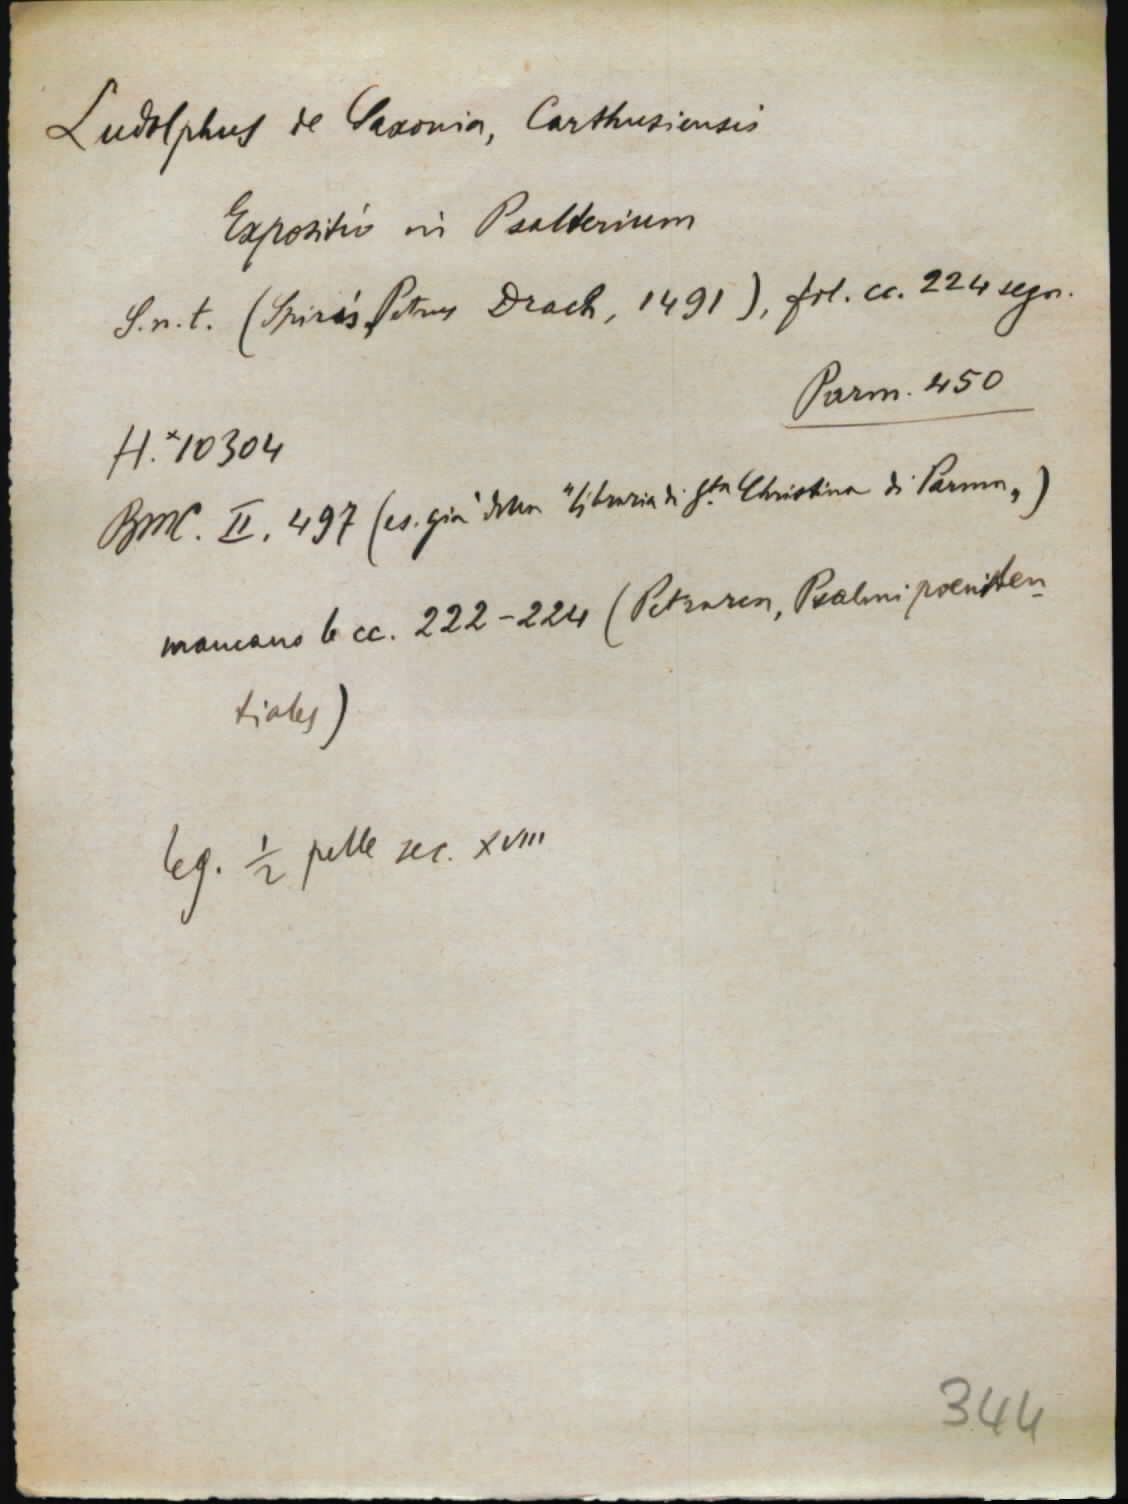 Ludolphus de Saxonia, Carthusiensis
Expositio in Psalterium
S.n.t. (Spiris, Petrus Drach, 1491), fol. cc. 224 segn.
Parm. 450
H.*10304
BMC. II. 497 (es. già della "libraria di Sta Christina di Parma„)
mancano le cc. 222-224 (Petrarca, Psalmi poeniten-
tiales)
leg. 1/2 pelle sec. XVIII
344